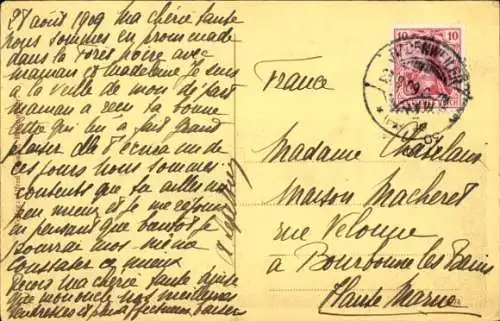 28 août 1909 Ma chérie tante
nous sommes en promenade
dans la Forêt noire avec
maman et Madeleine Je suis
à la veille de mon départ
maman a reçu ta bonne
lettre qui lui a fait grand
plaisir elle t'écrira un de
ces jours nous sommes
contents que tu ailles un
peu mieux et je me réjouis
en pensant que bientôt je
pourrai moi-même
constater ce mieux
Reçois ma chérie tante ainsi
que mon oncle nos meilleures
tendresses et plus affectueux baisers
10 10
France
Madame Chatelain
Maison Macheret
rue Velonne
à Bourbonne les Bains
Haute Marne